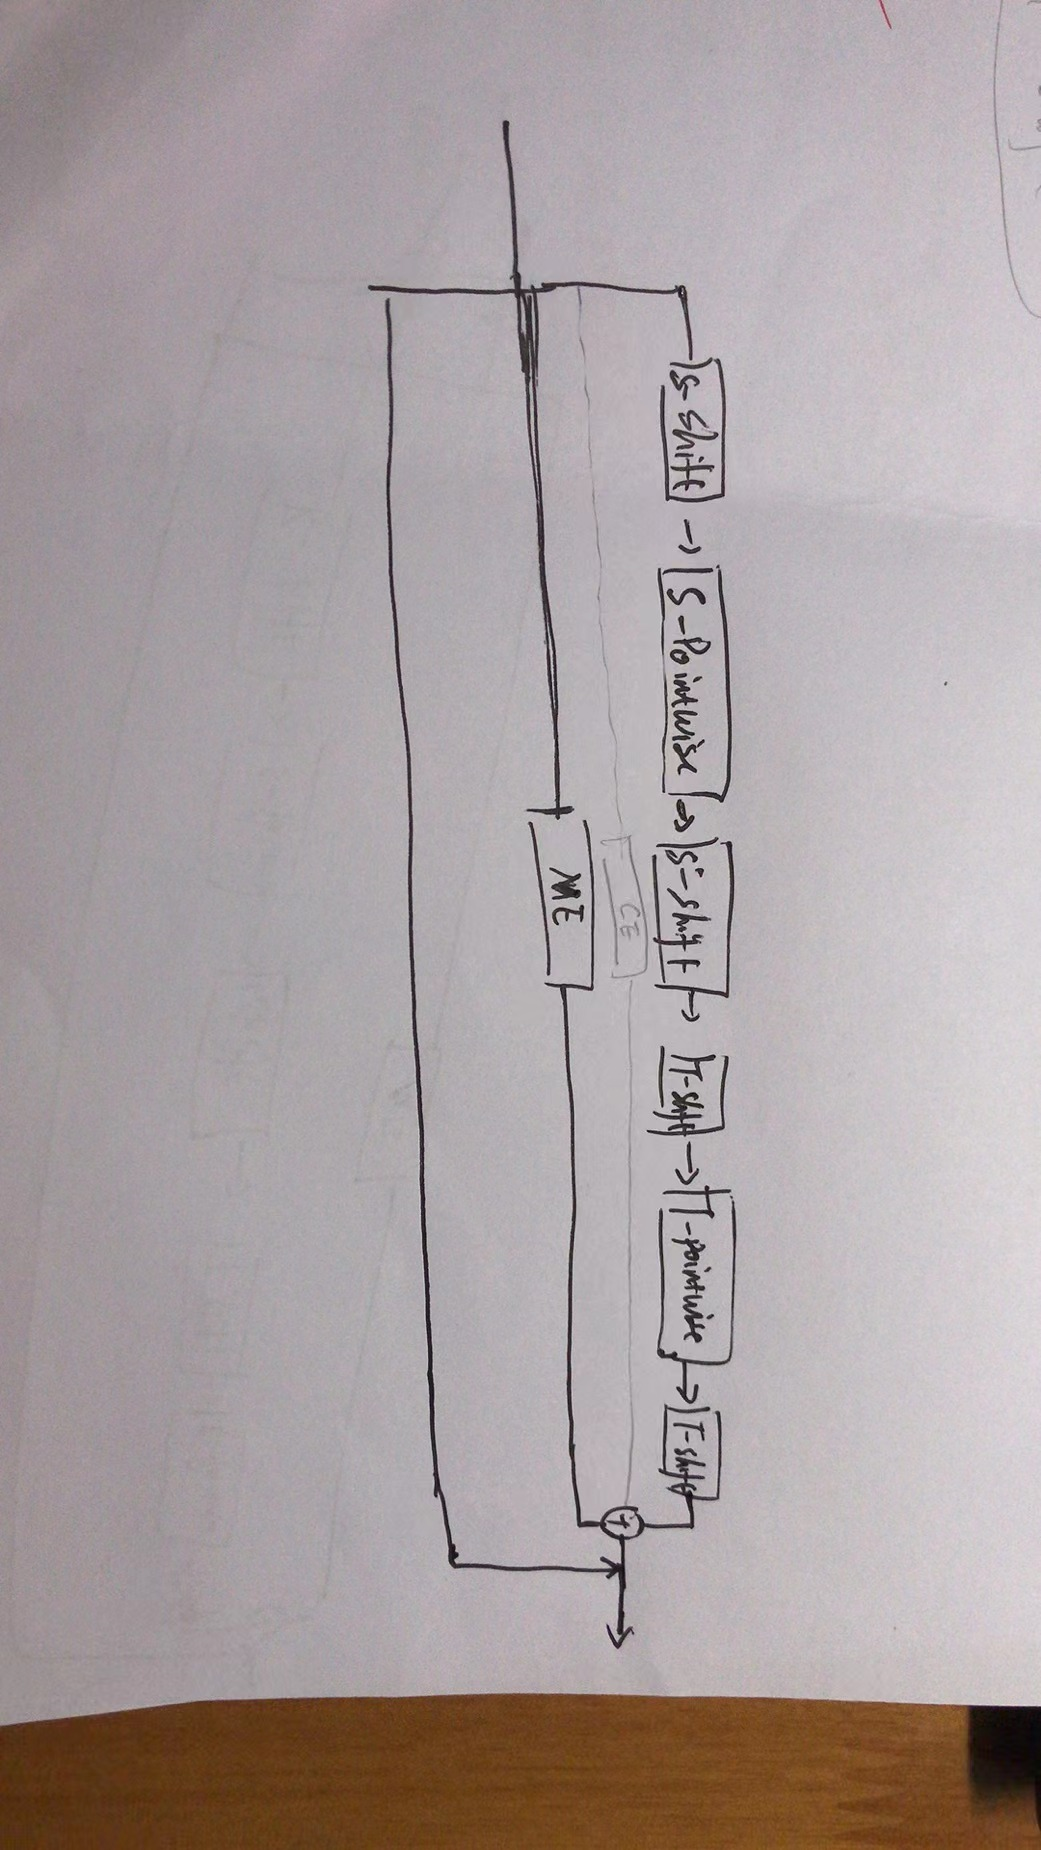 S-shift → S-Pointwise → S-shift → T-shift → T-pointwise → T-shift
CE
ME
+